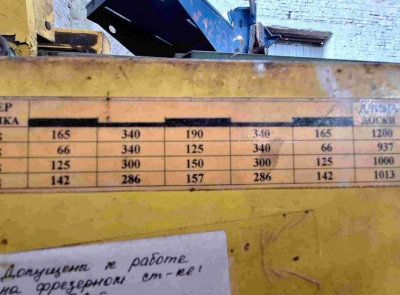 ЕР
НКА ДОСКИ
165 340 190 340 165 1200
66 340 125 340 66 937
125 300 150 300 125 1000
142 286 157 286 142 1013
Допущена к работе
на фрезерном ст-ке: